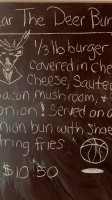 ar The Deer Bu
1/3 lb burger
covered in che
Cheese, Saute
acon mushroom, +
onion! Served on a
nion bun with Shoe
tring fries
$10.50